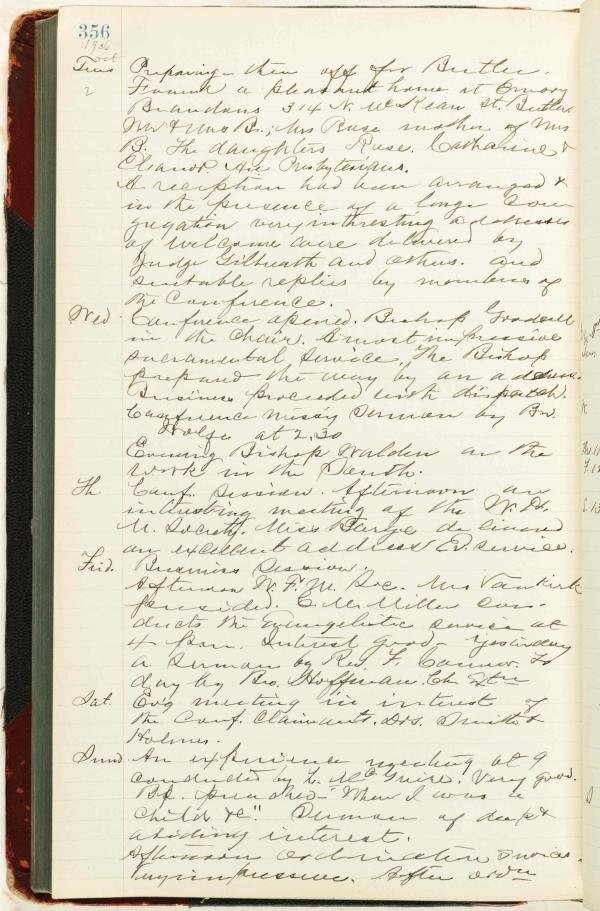 356
1906
Oct
Tues Preparing - then off for Butler.
2 Found a pleasant home at Emory
Brandons 314 N. McKean St. Butler
Mr & Mrs B., Mrs Rase mother of Mrs
B. The daughters Rase, Catharine &
Eleanor. Are Presbyterians.
A reception had been arranged &
in the presence of a large con-
gregation very intresting addresses
of Welcome were delivered by
Judge Gilbreath and others. and
suitable replies by members of
the Conference.
Wed Conference opened. Bishop Goodsell
in the Chair. A most impressive
sacramental service. The Bishop
prepared the way by an address.
Business proceeded with dispatch.
Conference Missy Sermon by Bro.
Wolfe at 2,30
Evening Bishop Walden on the
work in the South.
Th Conf. Session. Afternoon an
interesting meeting of the W. H.
M. Society. Miss delivered
an excellent address Ev. service.
Frid. Business Session.
Afternoon W. F. M. Soc. Mrs Vankirk
presided. C. M. Miller con-
ducts the Evangelistic service at
4 p.m. Interest good - yesterday
a Sermon by Rev. F. Connor. To
day by Bro. Hoffman. Ch Extn
Sat. Ev'g meeting in interest of
the Conf. Claimants. Drs. Smith &
Holmes.
Sund. An experience meeting at 9
conducted by L. McGuire. Very good.
Bp. preached - "When I was a
Child &c". Sermon of deep &
abiding interest.
Afternoon Ordination Service
very impressive. After Ordn